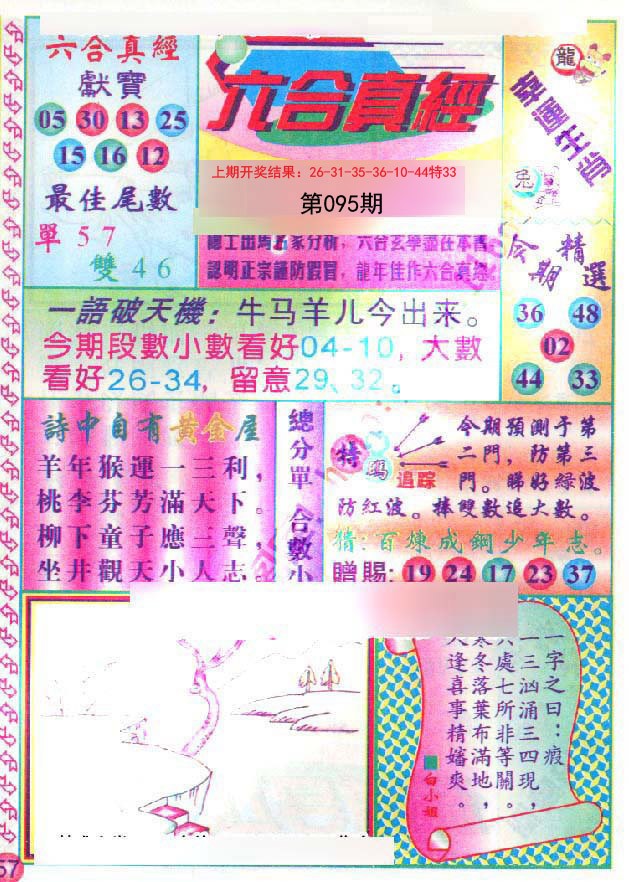 六合真經
獻寶
05 30 13 25
15 16 12
最佳尾數
單 5 7
雙 4 6
六合真經
上期开奖结果：26-31-35-36-10-44特33
第095期
認明正宗謹防假冒，龍年佳作六合真經
龍
幸運生肖
兔
今期精選
36 48
02
44 33
一語破天機：牛马羊儿今出来。
今期段數小數看好04-10，大數
看好26-34，留意29、32。
詩中自有黃金屋
羊年猴運一三利，
桃李芬芳滿天下。
柳下童子應三聲，
坐井觀天小人志。
總分單 合數小
特碼
追踪
今期預測于第
二門，防第三
門。睇好綠波
防紅波。捧雙數追大數。
猜：百煉成鋼少年志。
贈賜：19 24 17 23 37
一字之曰：瘕
一三汹涌三四現，
六處七所非等關。
寒冬落葉布滿地，
人逢喜事精嬸爽。
白小姐
57